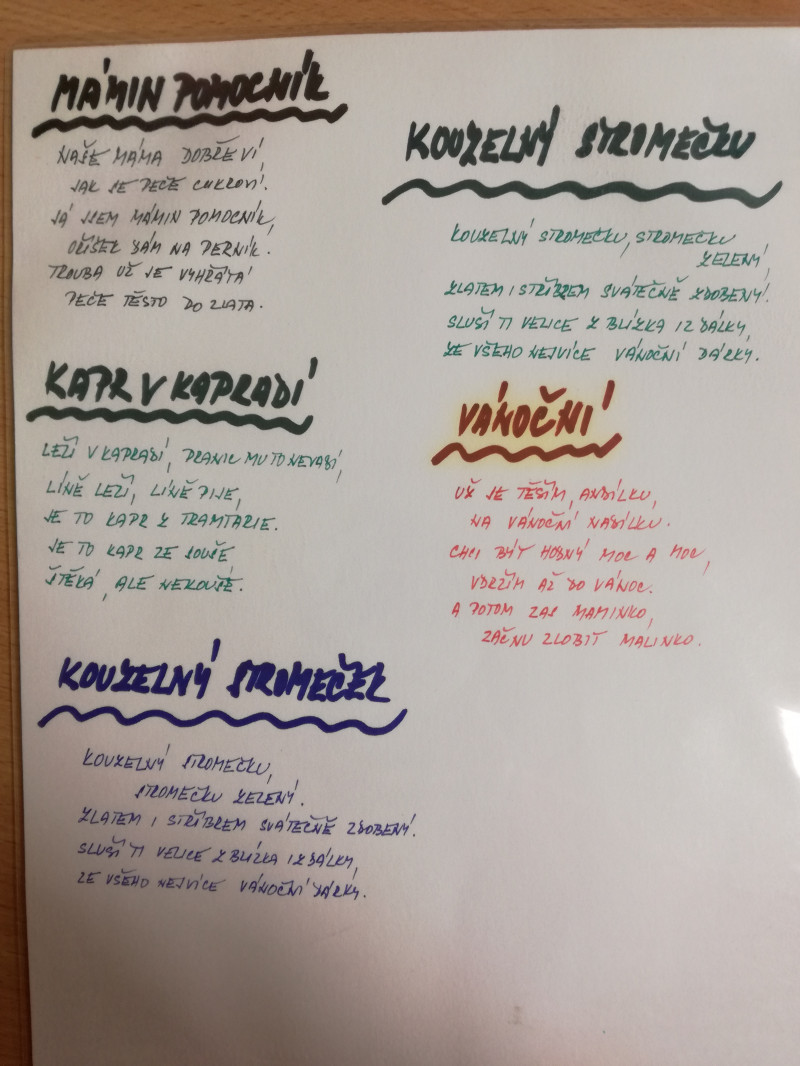 MÁMIN POMOCNÍK
NAŠE MÁMA DOBŘE VÍ,
JAK SE PEČE CUKROVÍ.
JÁ JSEM MÁMIN POMOCNÍK,
OŘÍŠEK DÁM NA PERNÍK.
TROUBA UŽ JE VYHŘÁTÁ
PEČE TĚSTO DO ZLATA.
KAPR V KAPRADÍ
LEŽÍ V KAPRADÍ, PRANIC MU TO NEVADÍ,
LÍNĚ LEŽÍ, LÍNĚ PIJE,
JE TO KAPR Z TRAMTÁRIE.
JE TO KAPR ZE SOUŠE
ŠTĚKÁ, ALE NEKOUŠE.
KOUZELNÝ STROMEČEK
KOUZELNÝ STROMEČKU,
STROMEČKU ZELENÝ.
ZLATEM I STŘÍBREM SVÁTEČNĚ ZDOBENÝ.
SLUŠÍ TI VELICE Z BLÍZKA I Z DÁLKY,
ZE VŠEHO NEJVÍCE VÁNOČNÍ DÁRKY.
KOUZELNÝ STROMEČKU
KOUZELNÝ STROMEČKU, STROMEČKU
ZELENÝ,
ZLATEM I STŘÍBREM SVÁTEČNĚ ZDOBENÝ.
SLUŠÍ TI VELICE Z BLÍZKA IZ DÁLKY,
ZE VŠEHO NEJVÍCE VÁNOČNÍ DÁRKY.
VÁNOČNÍ
UŽ SE TĚŠÍM, ANDÍLKU,
NA VÁNOČNÍ NADÍLKU.
CHCI BÝT HODNÝ MOC A MOC,
VDRŽÍM AŽ DO VÁNOC.
A POTOM ZAS MAMINKO,
ZAČNU ZLOBIT MALINKO.